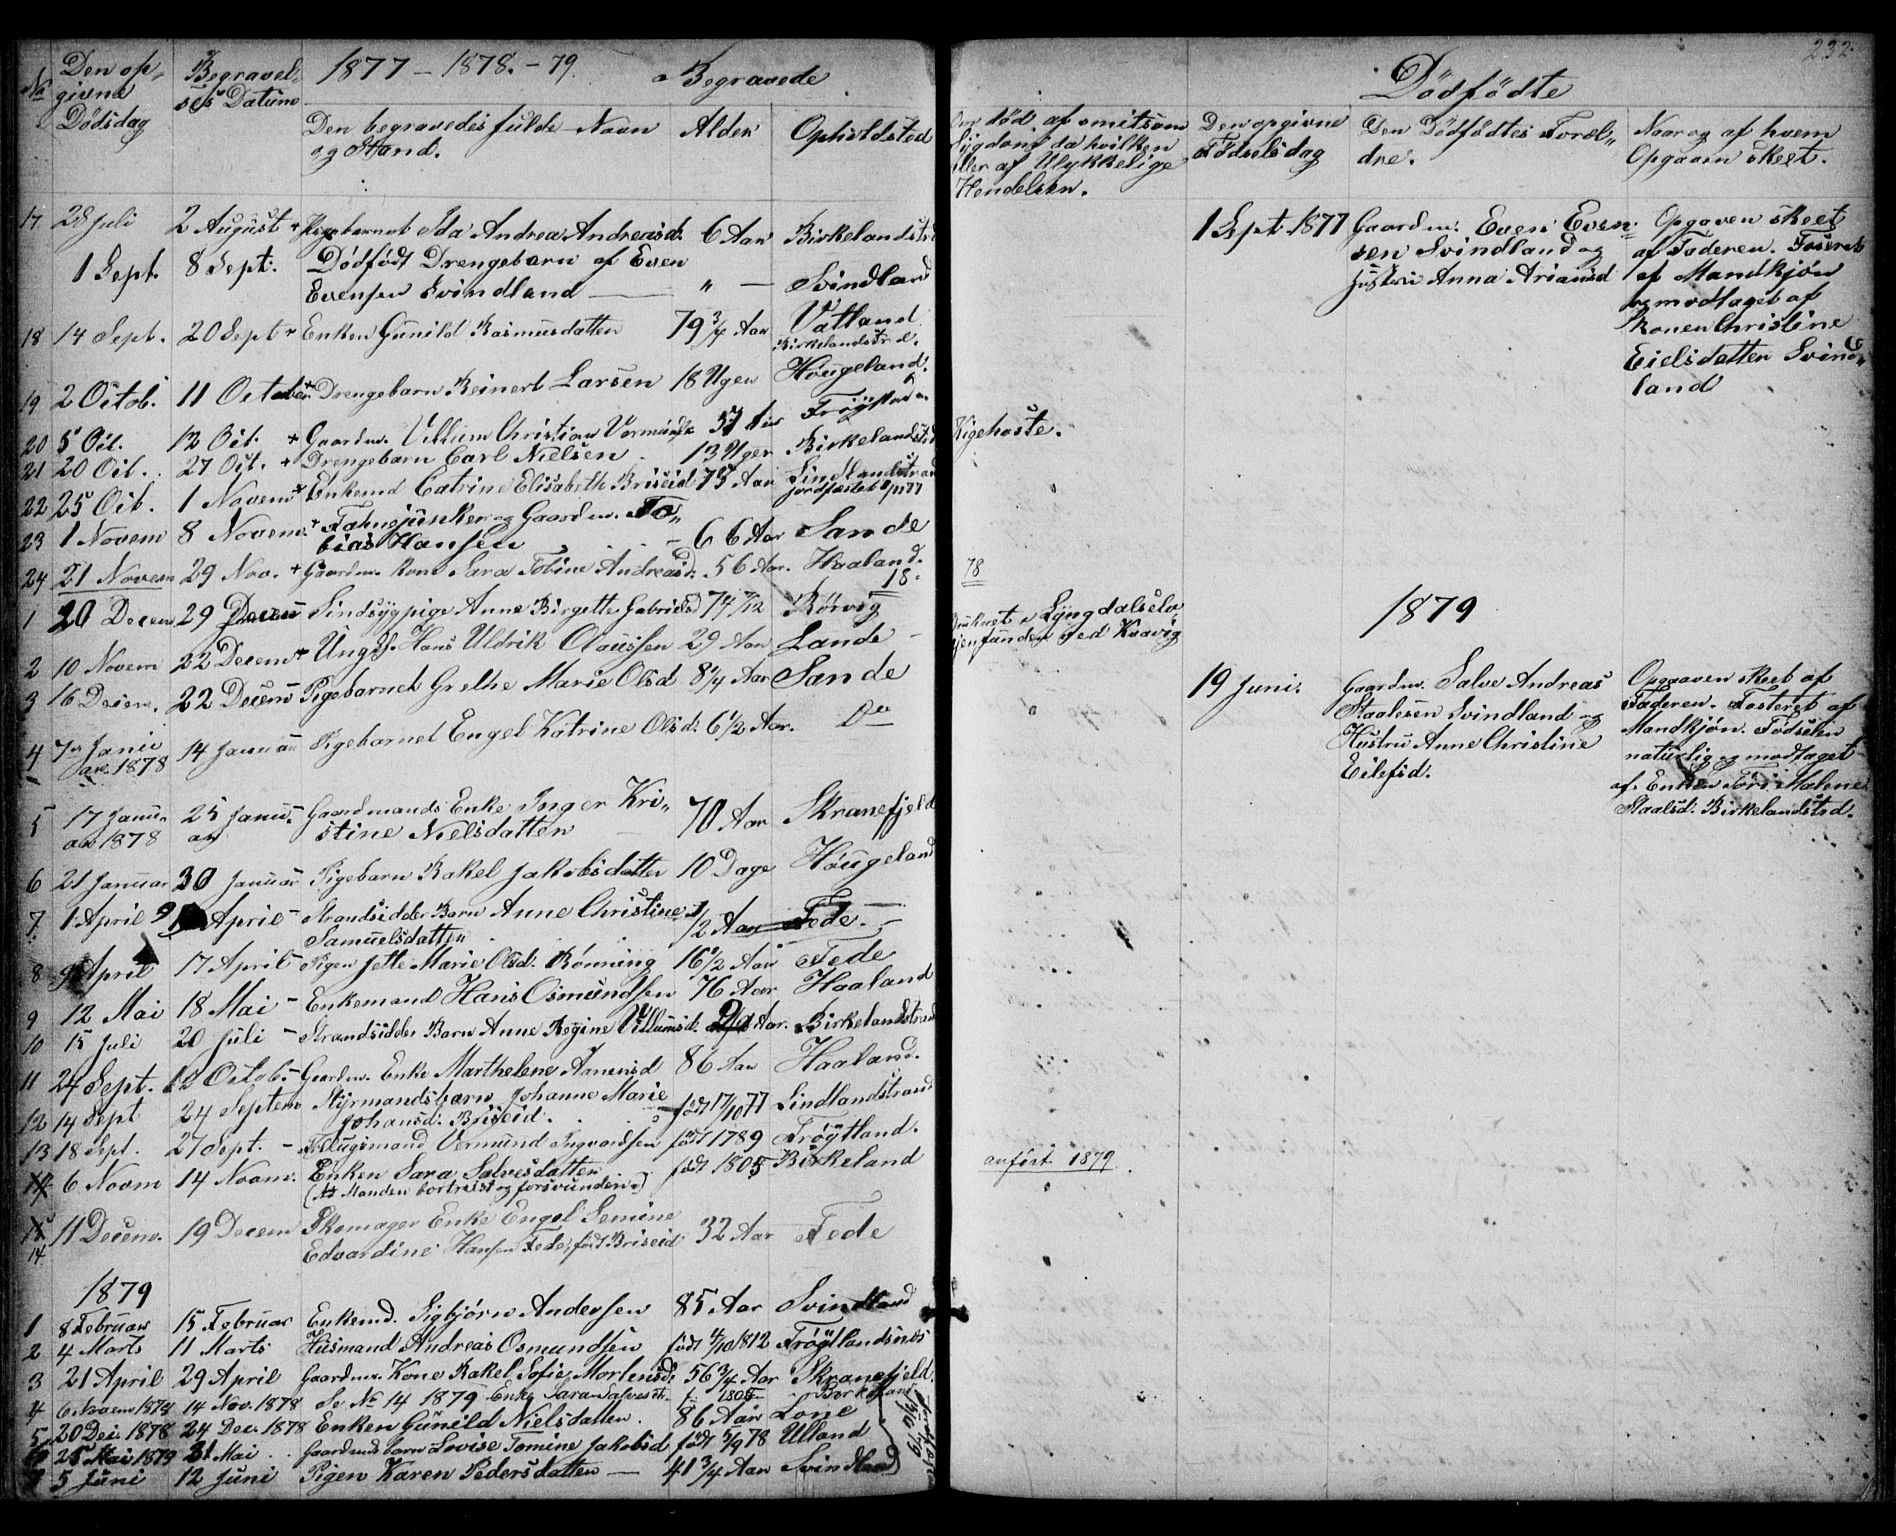 232.
No
Den op-
givne
Dödsdag
Begravel-
ses Datum
1877 - 1878. - 79.
Begravede
Den begravedes fulde Navn
og Stand.
Alder
Opholdsted
Om död af smitsom
Sygdom da hvilken
eller af Ulykkelige
Hendelser.
Dödfödte
Den opgivne
Födselsdag
Den Dödfödtes Forel-
dre.
Naar og af hvem
Opgaven skeet.
17 28 Juli 2 August + Pigebarnet Ida Andrea Andreasd. 6 Aar Birkelandstrd
1 Sept. 8 Sept. Dödfödt Drengebarn af Even
Evensen Svindland " Svindland
18 14 Sept. 20 Sept + Enken Gunild Rasmusdatter 79 3/4 Aar Vatland
Birkelandstrd.
19 2 Octob. 11 October + Drengebarn Reinert Larsen 18 Uger Høugeland.
20 5 Oct. 12 Oct. + Gaardm. Villum Christian 57 Aar
21 20 Oct. 27 Oct. + Drengebarn Carl Nielsen . 13 Uger Birkelandstrd
22 25 Oct. 1 Novem + Enkemd Catrine Elisabeth Briseid 75 Aar Lindlandstrand
jordfæstet
23 1 Novem 8 Novem. + Fahnejunker og Gaardm. To-
bias Hansen 66 Aar Sande
24 21 Novem 29 Nov. + Gaardm. Kone Sara Tobine Andreasd. 56 Aar. Haaland.
18-
78
1 20 Decem 29 Decem Sindsygpige Anne Birgette Gabrielsd 74 7/12 Rørvig
2 10 Novem 22 Decem + Ungk. Hans Uldrik Claussen 29 Aar Lande
3 16 Decem. 22 Decem Pigebarnet Grethe Marie Olsd 8 1/4 Aar Sande
4 7 Janu
ar 1878 14 Januar Pigebarnet Engel Katrine Olsd. 6 1/2 Aar. Do
5 17 Janu-
ar 1878 25 Janu-
ar Gaardmands Enke Inger Kri-
stine Nielsdatter 70 Aar Skranefjeld
6 21 Januar 30 Januar Pigebarn Rakel Jakobsdatter 10 Dage Høugeland
7. 1 April 9 April - Strandsidder Barn Anne Christine
Samuelsdatter 1/2 Aar Fede.
8 April 17 April - Pigen Jette Marie Olsd. Rönning 16 1/2 Aar Fede
9 12 Mai 18 Mai - Enkemand Hans Osmundsen 76 Aar Haaland
10 15 Juli 20 Juli - Strandsidder Barn Anne Regine Villumsd. Aar. Birkelandstrand
11 24 Sept. 12 Octob. - Gaardm. Enke Marthelene Aanensd 86 Aar Haaland.
12 14 Sept 24 Septem Styrmandsbarn Johanne Marie
Johansd. Briseid. födt 17/10 77 Lindlandstrand
13 18 Sept. 27 Sept. - Vermund Ingvardsen födt 1789 Tröytland.
14 6 Novm 14 Novm. Enken Sara Salvesdatter
(At Manden bortreist og forsvunden.) födt 1805 Birkeland
15
14 11 Decem. 19 Decem Skomager Enke Engel Semine
Edvardine Hansen Fede, födt Briseid 32 Aar Fede
1879
1 8 Februar 15 Februar Enkemd. Sigbjörn Andersen 85 Aar Svindland
2 4 Marts 11 Marts Husmand Andreas Osmundsen födt 4/10 1812 Tröytlandsnes
3 21 April 29 April Gaardm. Kone Rakel Sofie Mortensd. 56 3/4 Aar Skranefjeld.
4 6 Novem 1878 14 Nov. 1878 Se No 14 1879 Enke Sara Salvesdt. f. 1805 Birkeland
5 20 Dec. 1878 24 Dec. 1878 Enken Gunild Nielsdatter. 86 Aar Lone
6 25 Mai 1879 31 Mai Gaardmd barn Lovise Tomine Jakobsd födt 5/9 78 Ulland
7 5 Juni 12 Juni Pigen Karen Pedersdatter 41 3/4 Aar Svindland
Kighoste.
Druknet i Lyngdalselv
igjenfunden ved Kvavig
anfört 1879
1 Sept. 1877 Gaardm. Even Even-
sen Svindland og
Hustru Anna Ariansd
Opgaven skeet
af Faderen. Fosteret
af Mandkjön
og modtaget af
Konen Christine
Eielsdatter Svind-
land
1879
19 Juni. Gaardm. Salve Andreas
Staalesen Svindland og
Hustru Anne Christine
Eilefsd.
Opgaven skeet af
Faderen. Fosteret af
Mandkjön. Födselen
naturlig og modtaget
af Enken Tori Malene
Staalsd. Birkelandstrd.